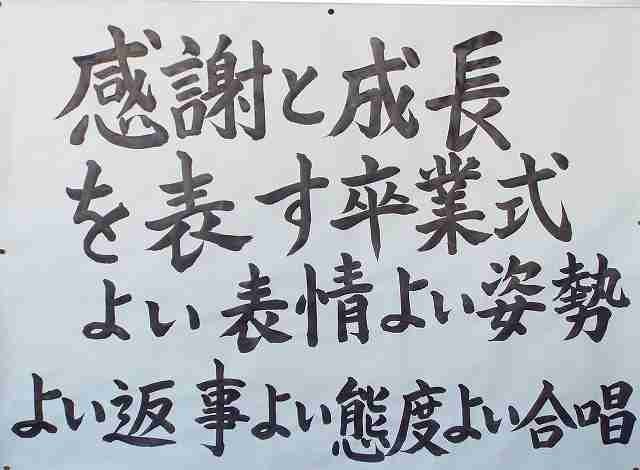 感謝と成長
を表す卒業式
よい表情よい姿勢
よい返事よい態度よい合唱